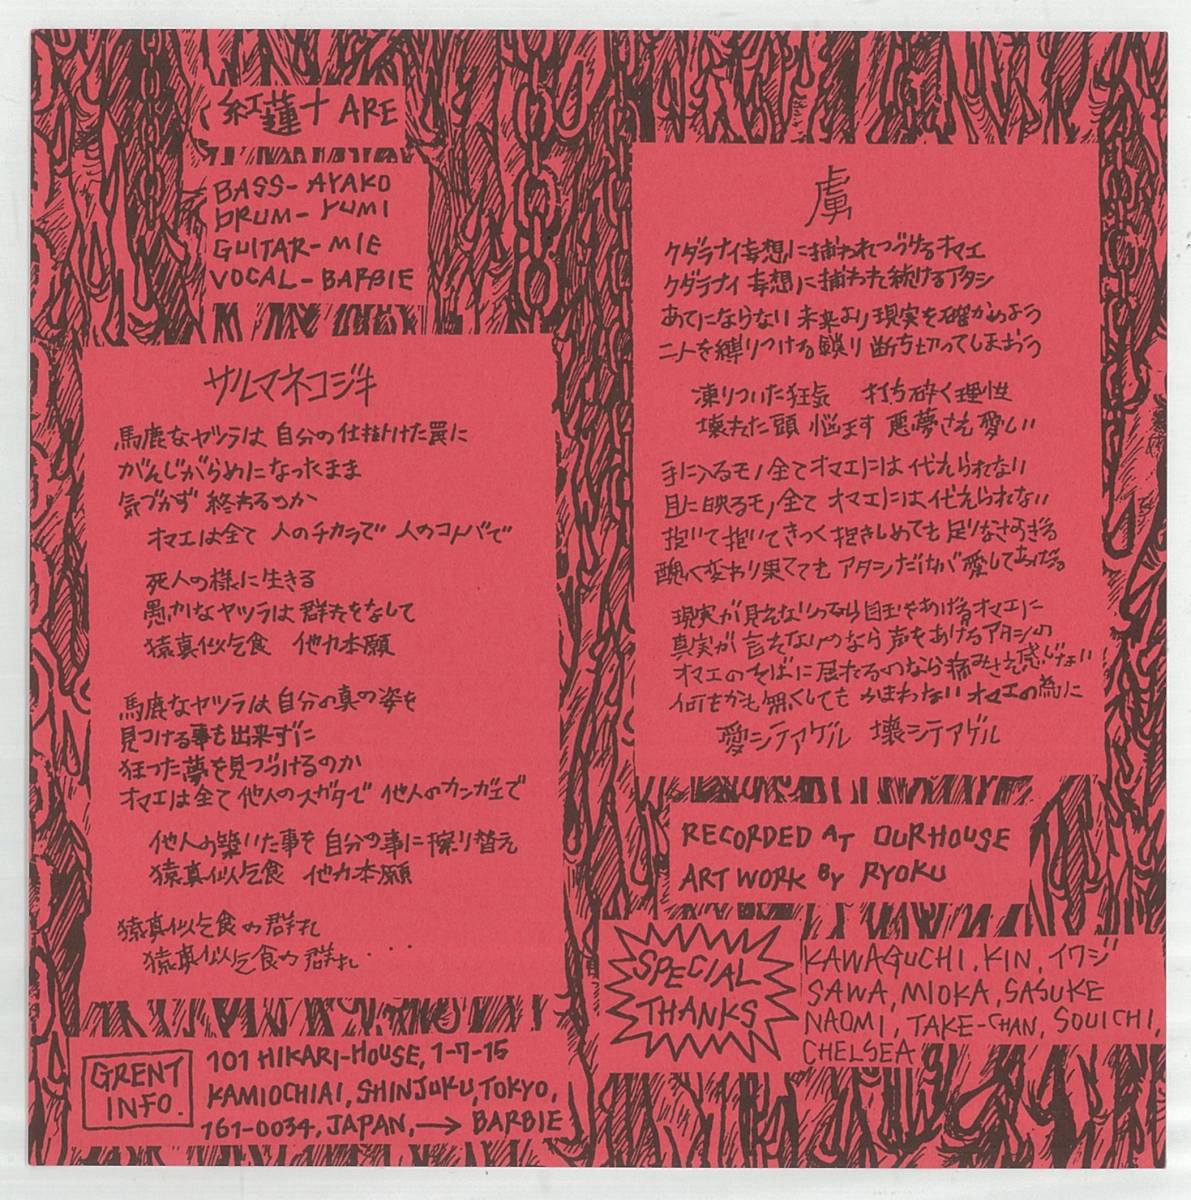 紅蓮十 ARE
BASS- AYAKO
DRUM- YUMI
GUITAR- MIE
VOCAL- BARBIE
サルマネコジキ
馬鹿なヤツラは 自分の仕掛けた罠に
がんじがらめになったまま
気づかず 終わるのか
オマエは全て 人のチカラで 人のコトバで
死人の様に生きる
愚かなヤツラは 群れをなして
猿真似乞食 他力本願
馬鹿なヤツラは 自分の真の姿を
見つける事も出来ずに
狂った夢を見つづけるのか
オマエは全て 他人のスガタで 他人のカンガエで
他人の築いた事を 自分の事に擦り替え
猿真似乞食 他力本願
猿真似乞食の群れ
猿真似乞食の群れ..
GRENT
INFO.
101 HIKARI-HOUSE, 1-7-15
KAMIOCHIAI, SHINJUKU, TOKYO,
161-0034, JAPAN, → BARBIE
虜
クダラナイ妄想に捕われつづけるオマエ
クダラナイ 妄想に捕われ続けるアタシ
あてにならない 未来より現実を確かめよう
二人を縛りつける鎖り 断ち切ってしまおう
凍りついた狂気 打ち砕く理性
壊れた頭 悩ます 悪夢さえ愛しい
手に入るモノ全てオマエには代えられない
目に映るモノ全て オマエには代えられない
抱いて抱いてきつく抱きしめても 足りなさすぎる
醜く変わり果てても アタシだけが愛してあげる。
現実が見えないのなら目玉をあげる オマエに
真実が 言えないのなら 声をあげるアタシの
オマエのそばに居れるのなら痛みさえ感じない
何もかも無くしても かまわない オマエの為に
愛シテアゲル 壊シテアゲル
RECORDED AT OURHOUSE
ART WORK BY RYOKU
SPECIAL
THANKS
KAWAGUCHI, KIN, イワジ
SAWA, MIOKA, SASUKE
NAOMI, TAKE-CHAN, SOUICHI,
CHELSEA